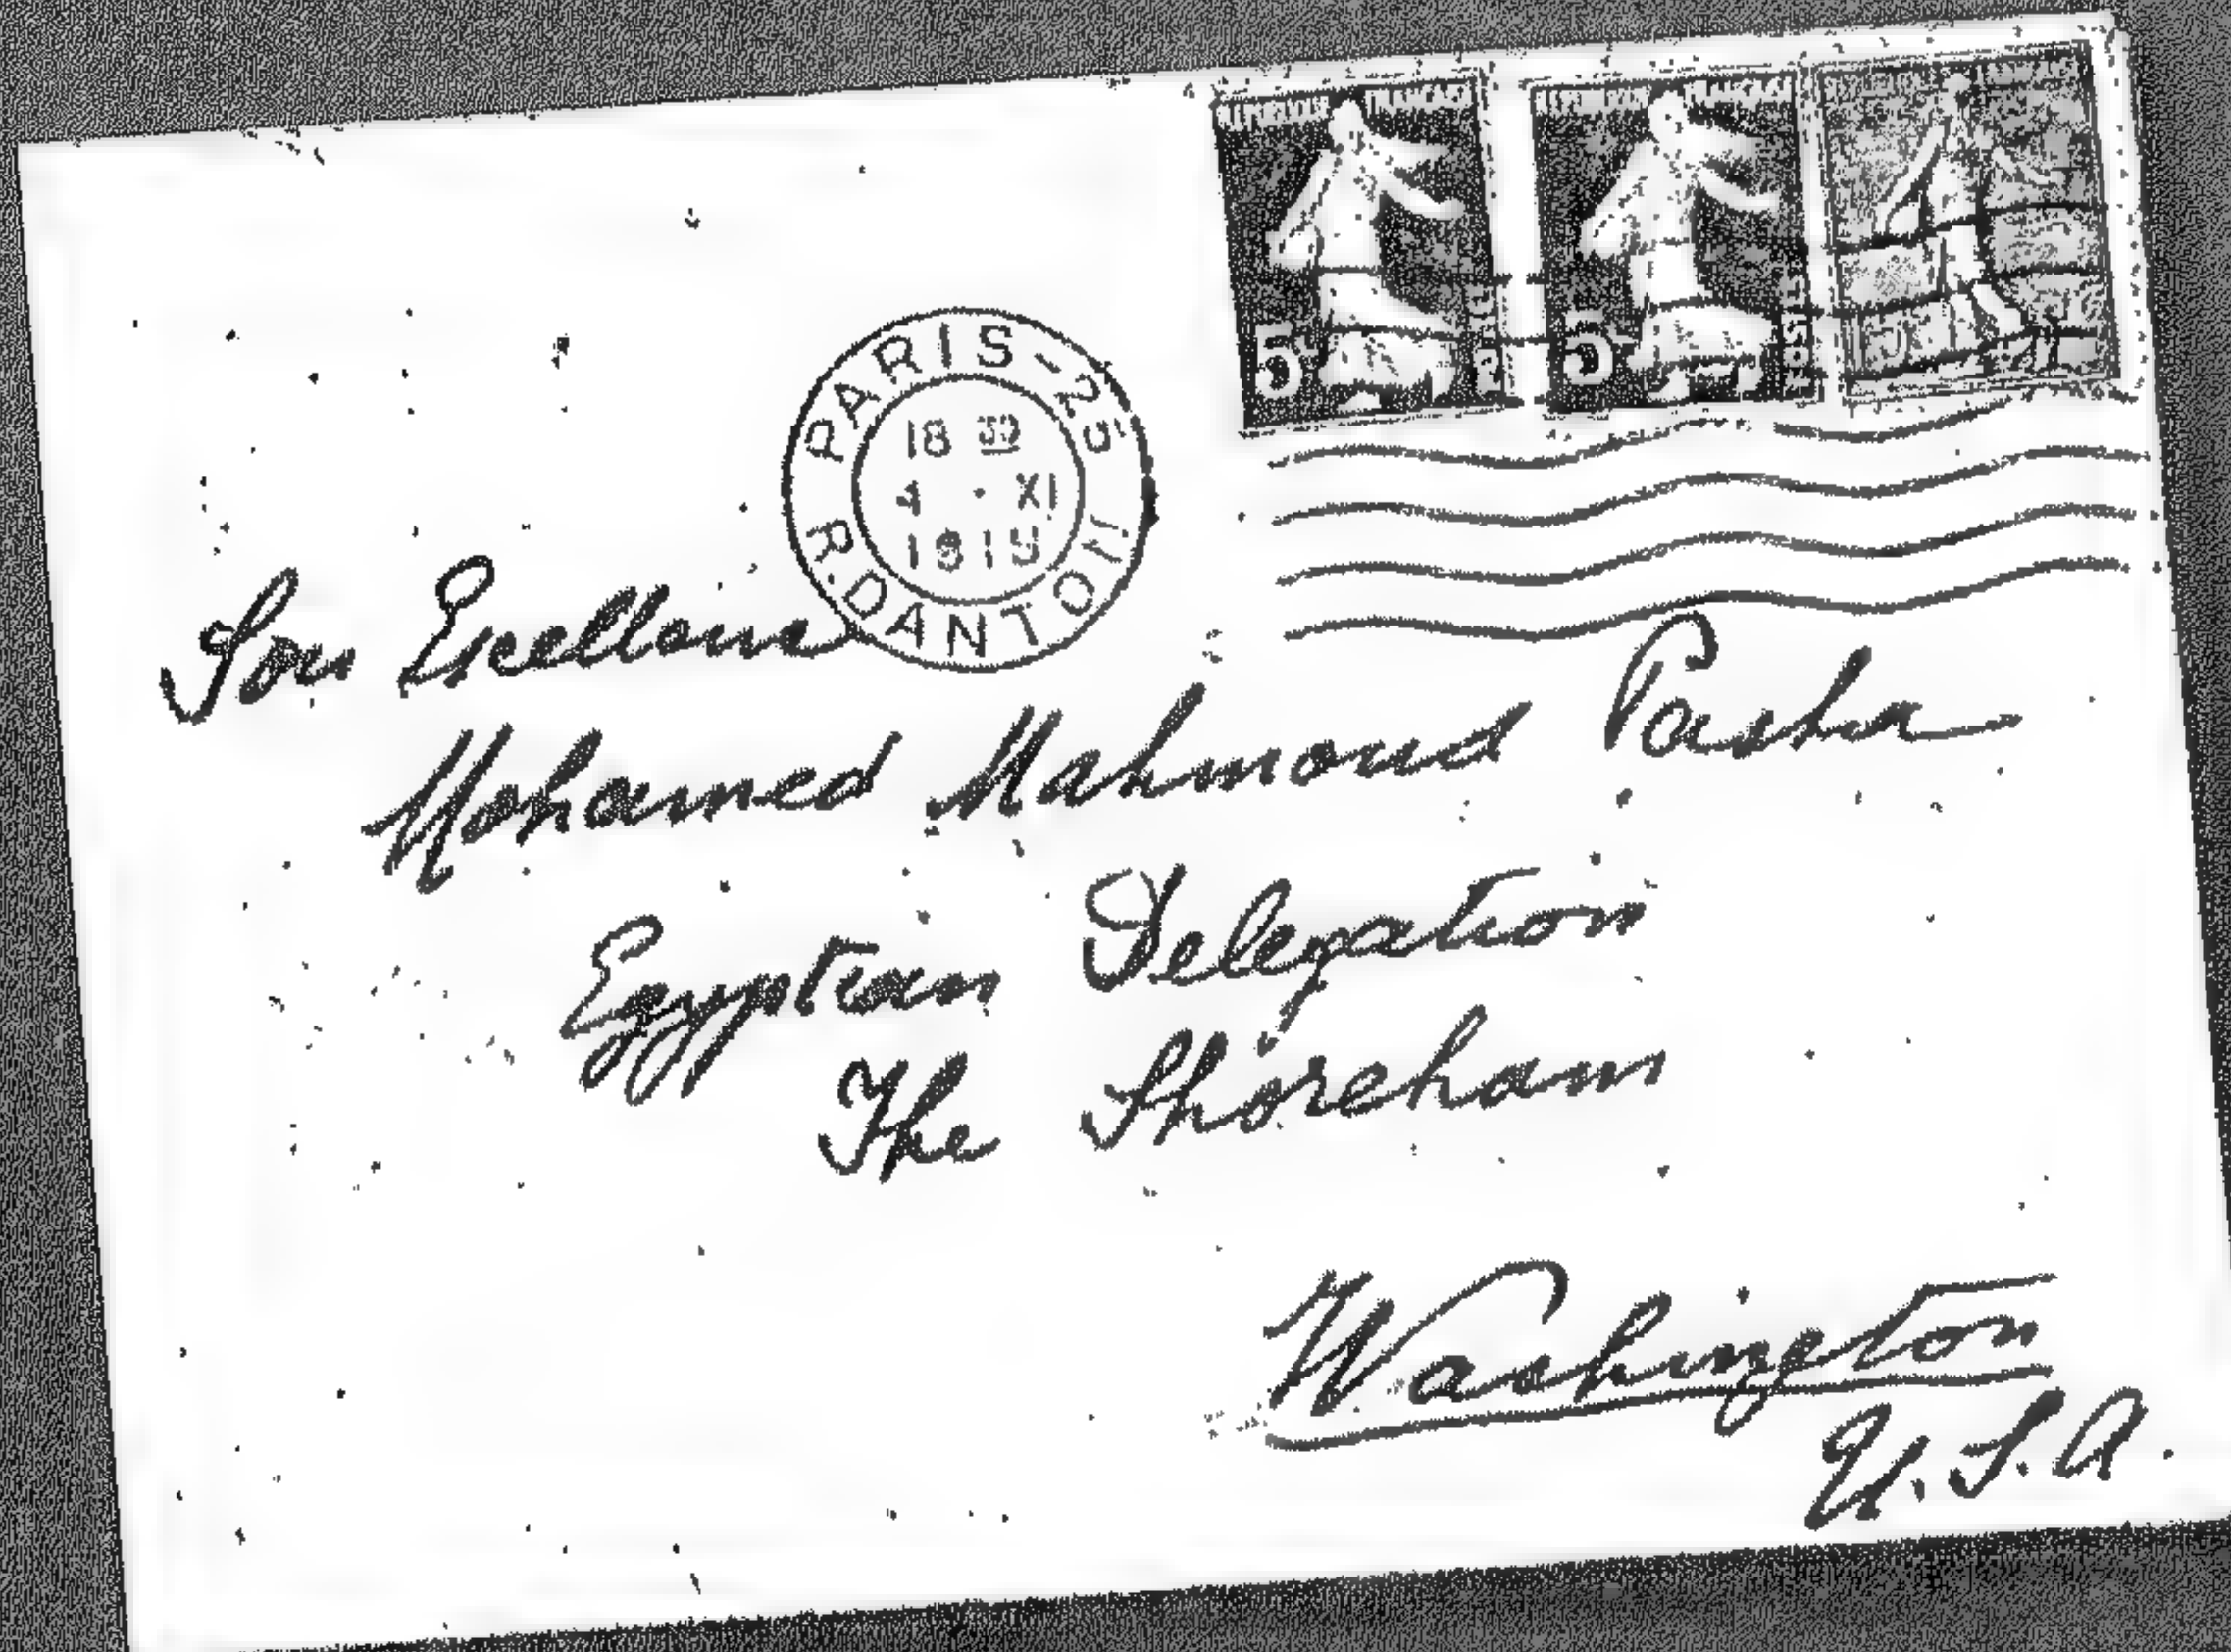 PARIS-25
18 30
4 · XI
1919
R. DANTON
5
5
Son Excellence
Mohamed Mahmoud Pasha
Egyptian Delegation
The Shoreham
Washington
U.S.A.